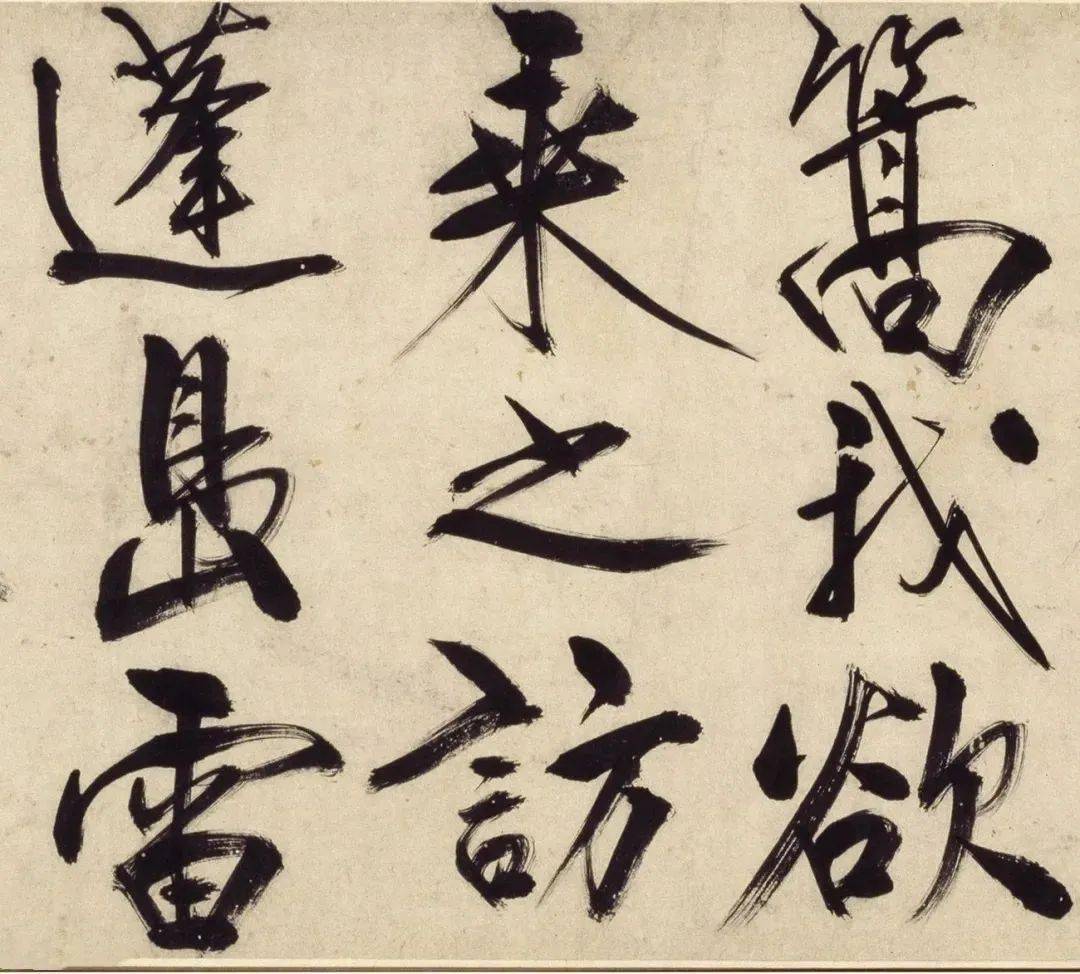 篙我欲
乘之訪
蓬島雷